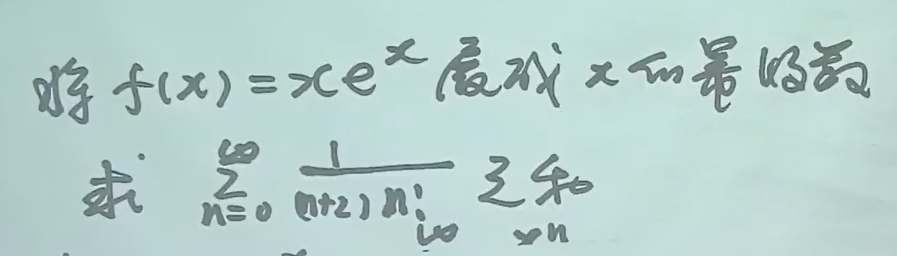 将 f(x)=xeˣ 展成 x 的幂级数
求 ∑_{n=0}^{∞} 1/((n+2)n!) 之和
∞ xⁿ